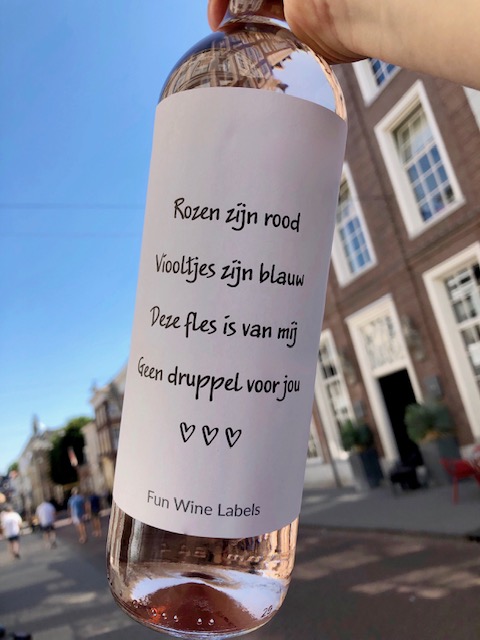 Rozen zijn rood
Viooltjes zijn blauw
Deze fles is van mij
Geen druppel voor jou
♡♡♡
Fun Wine Labels